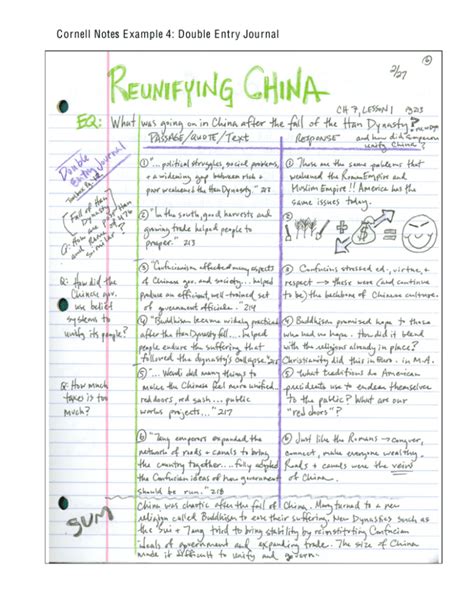 Cornell Notes Example 4: Double Entry Journal
6
2/27
REUNIFYING CHINA
CH 7, LESSON 1 pg 213
EQ: What was going on in China after the fall of the Han Dynasty?
and how did emperors
unify China?
PASSAGE/QUOTE/TEXT
RESPONSE
Double
Entry Journal
① "...political struggles, social problems,
+ a widening gap between rich +
poor weakened the Han Dynasty." 213
① These are the same problems that
weakened the Roman Empire and
Muslim Empire!! America has the
same issues today.
[Fall of Han
Dynasty
Q: How are
and Rome
similar?
② "In the south, good harvests and
growing trade helped people to
prosper." 213
② + $ =
Q: How did the
Chinese gov.
use belief
systems to
unify its people?
③ "Confucianism affected many aspects
of Chinese gov. and society... helped
produce an efficient, well-trained set
of government officials." 214
③ Confucius stressed ed., virtue, +
respect → these were (and continue
to be) the backbone of Chinese culture.
④ "Buddhism became widely practiced
after the Han Dynasty fell... helped
people endure the suffering that
followed the dynasty's collapse."
④ Buddhism promised hope to those
who had no hope. How did it blend
with the religions already in place?
Christianity did this in Euro. in M.A.
Q: How much
taxes is too
much?
⑤ "...Wendi did many things to
make the Chinese feel more unified...
red doors, red sash... public
works projects..." 217
⑤ What traditions do American
presidents use to endear themselves
to the public? What are our
"red doors"?
⑥ "Tang emperors expanded the
network of roads + canals to bring
the country together... fully adopted
the Confucian ideas of how government
should be run." 218
⑥ Just like the Romans → conquer,
connect, make everyone wealthy.
Roads + canals were the veins
of China.
SUM
China was chaotic after the fall of China. Many turned to a new
religion called Buddhism to ease their suffering. New Dynasties such as
the Sui + Tang tried to bring stability by reinstituting Confucian
ideals of government and expanding trade. The size of China
made it difficult to unify and govern.